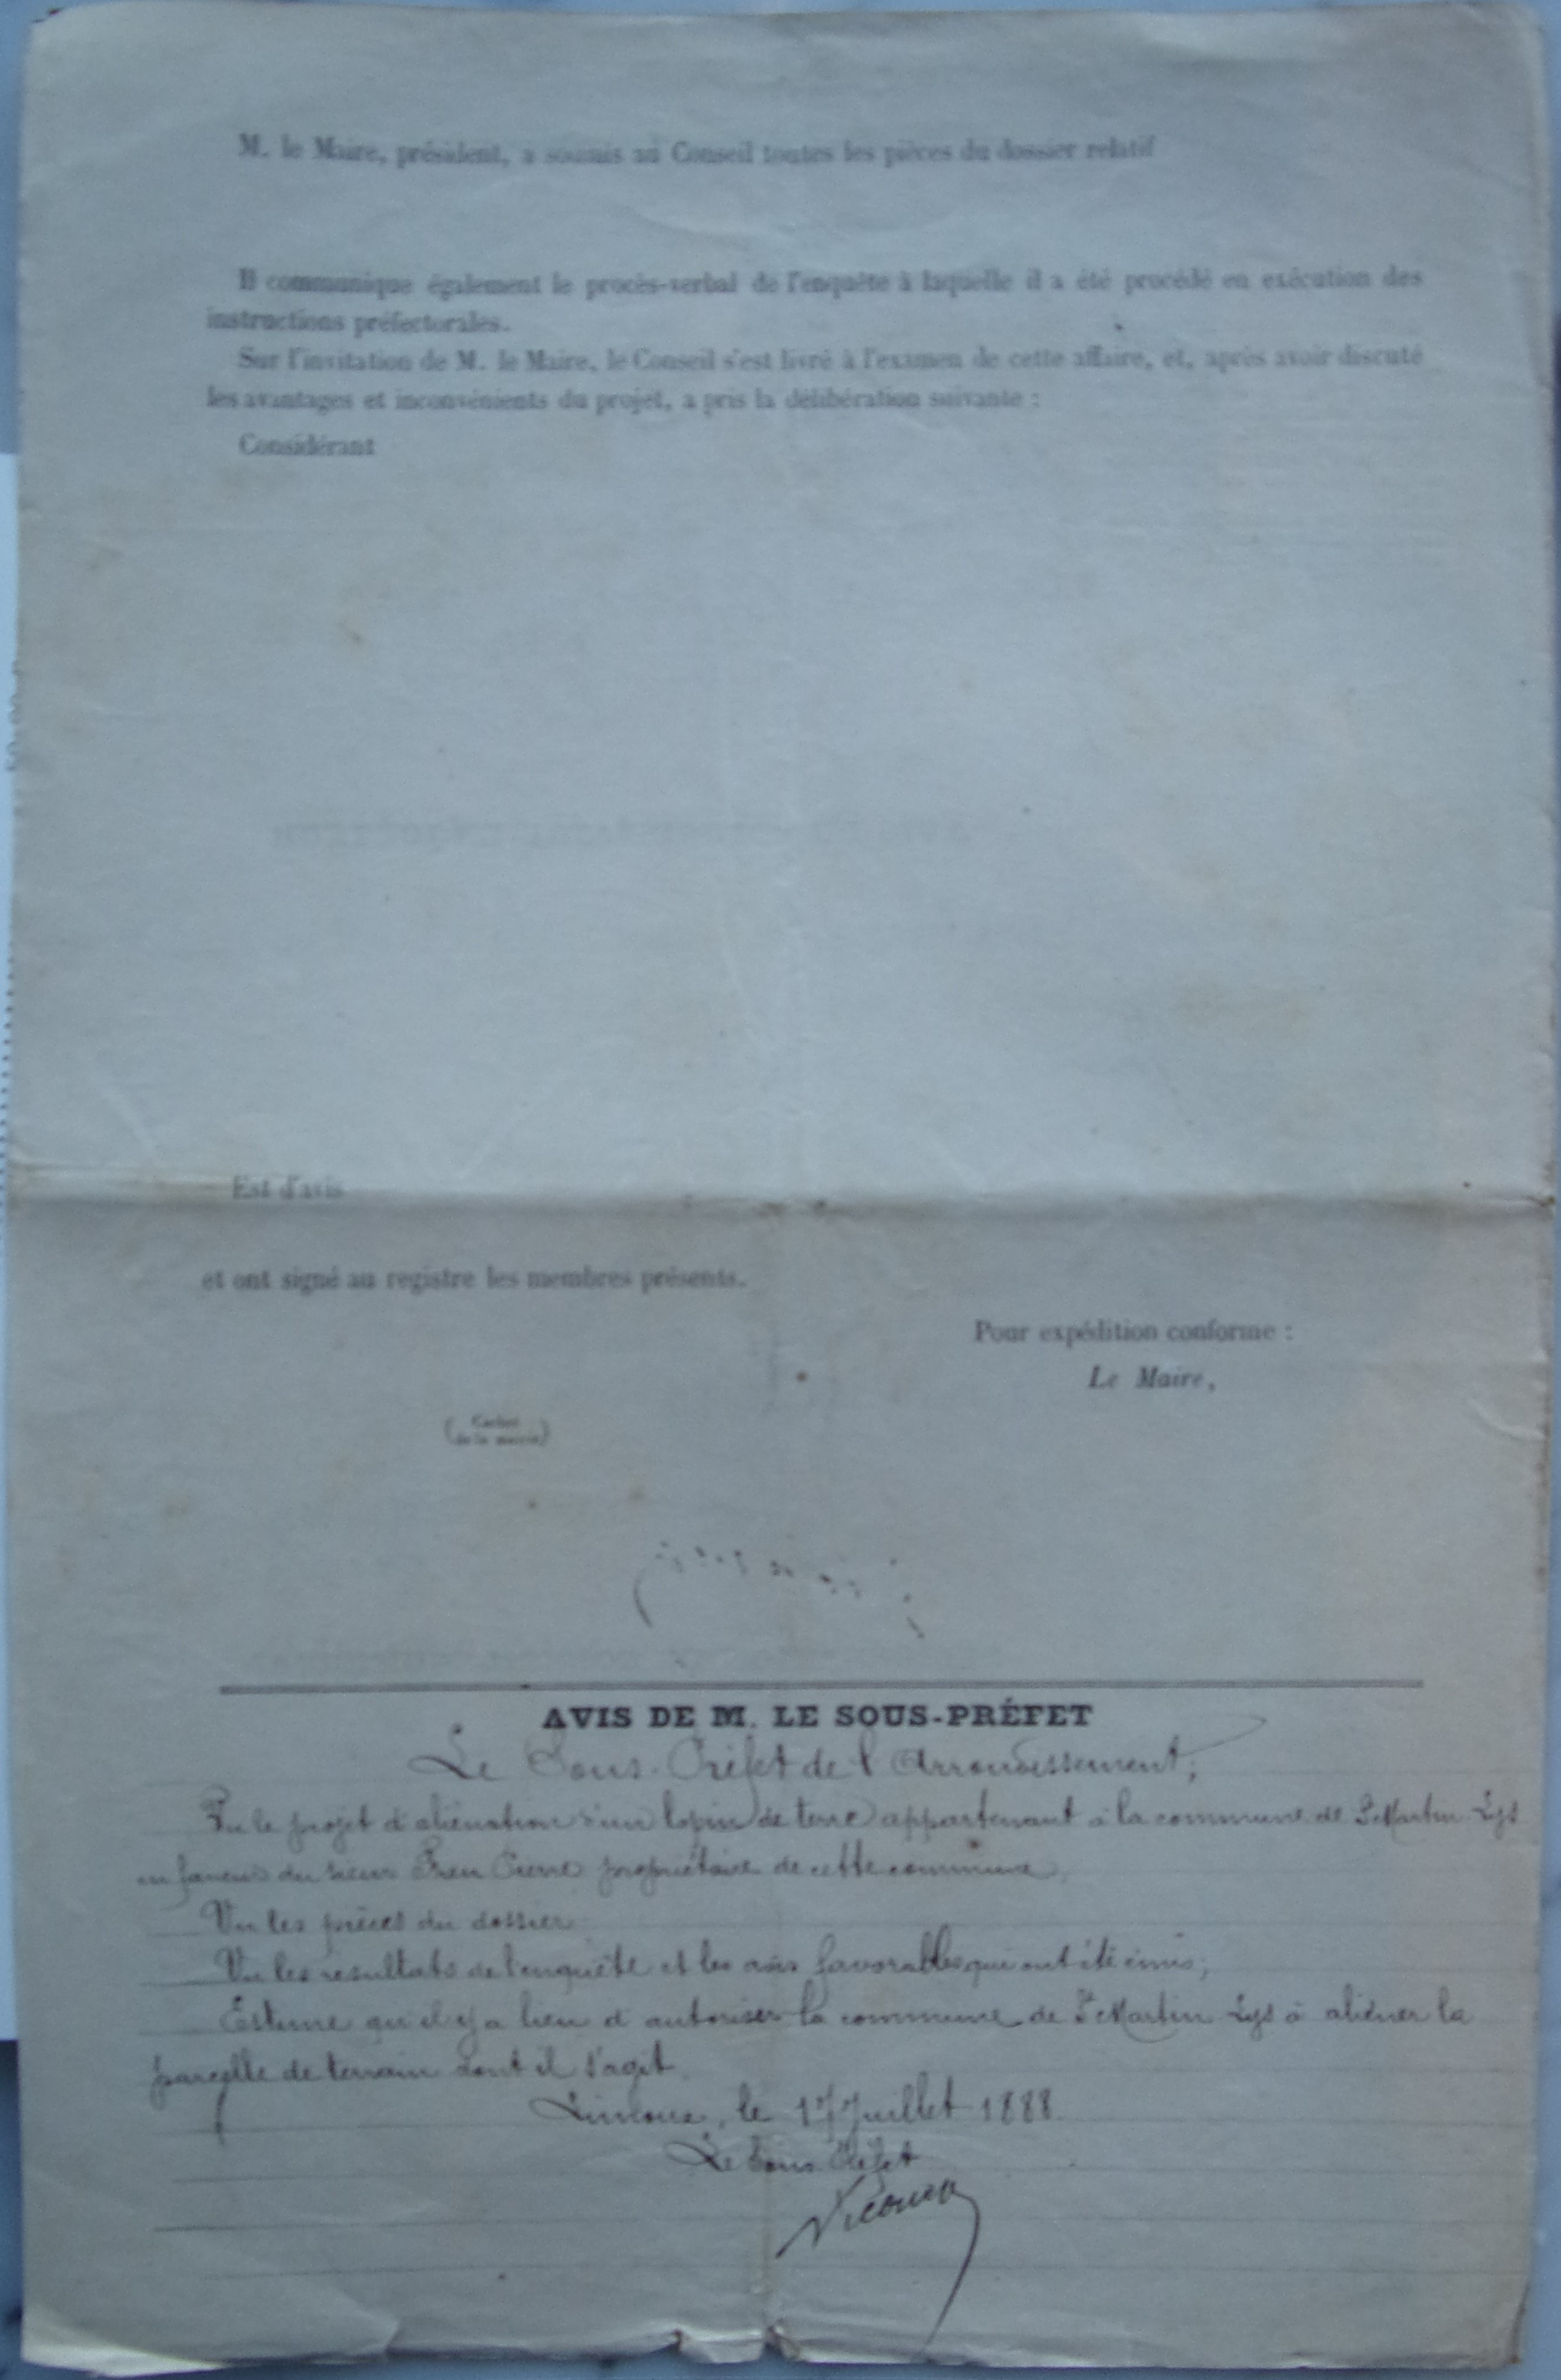 M. le Maire, président, a soumis au Conseil toutes les pièces du dossier relatif
Il communique également le procès-verbal de l'enquête à laquelle il a été procédé en exécution des
instructions préfectorales.
Sur l'invitation de M. le Maire, le Conseil s'est livré à l'examen de cette affaire, et, après avoir discuté
les avantages et inconvénients du projet, a pris la délibération suivante :
Considérant
Est d'avis
et ont signé au registre les membres présents.
Pour expédition conforme :
Le Maire,
(Cachet
de la mairie)
AVIS DE M. LE SOUS-PRÉFET
Le Sous-Préfet de l'Arrondissement,
Vu le projet d'aliénation d'un lopin de terre appartenant à la commune de St Martin Lys
en faveur du sieur Pierre propriétaire de cette commune,
Vu les pièces du dossier
Vu les résultats de l'enquête et les avis favorables qui ont été émis;
Estime qu'il y a lieu d'autoriser la commune de St Martin Lys à aliéner la
parcelle de terrain dont il s'agit.
Limoux, le 17 Juillet 1888.
Le Sous Préfet